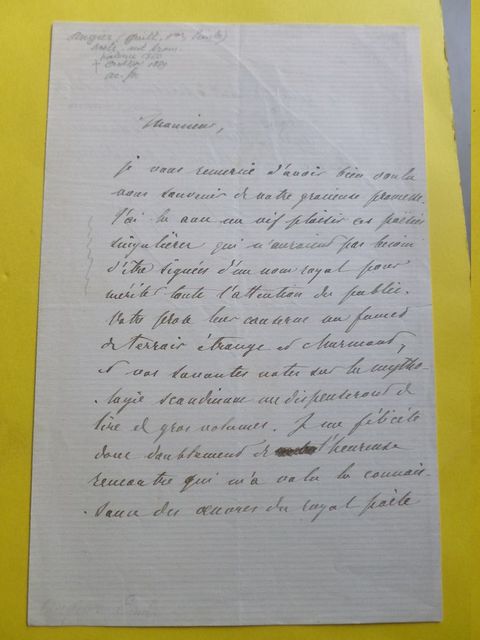 Augier (Guill. Vor Émile)
né à Valence 1820
† Croissy 1889
ac. fr.
Monsieur,
je vous remercie d'avoir bien voulu
vous souvenir de votre gracieuse promesse.
J'ai lu avec un vif plaisir ces poésies
singulières qui n'auraient pas besoin
d'être signées d'un nom royal pour
mériter toute l'attention du public.
Votre prose leur conserve un fumet
de terroir étrange et charmant,
et vos savantes notes sur la mytho-
logie scandinave me dispenseront de
lire de gros volumes. Je me félicite
donc doublement de l'heureuse
rencontre qui m'a valu la connais-
sance des œuvres du royal poète